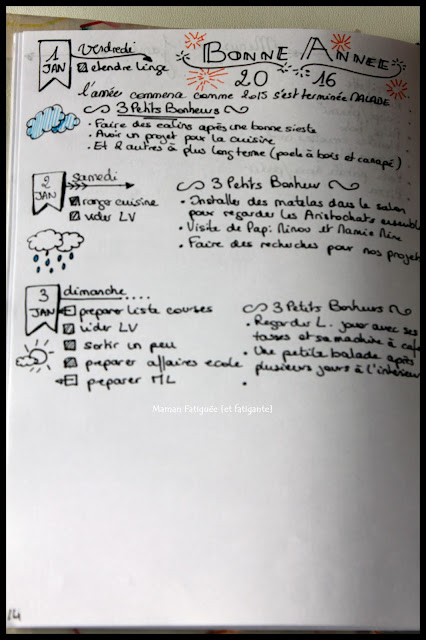 1 JAN
Vendredi
étendre linge
BONNE ANNEE
20 16
l'année commence comme 2015 s'est terminée MALADE
3 Petits Bonheurs
• Faire des calins après une bonne sieste
• Avoir un projet pour la cuisine
• Et 2 autres à plus long terme (poele à bois et canapé)
2 JAN
samedi
ranger cuisine
vider LV
3 Petits Bonheur
• Installer des matelas dans le salon
pour regarder les Aristochats ensemble
• Visite de Papi Ninou et Mamie Nine
• Faire des recherches pour nos projets
3 JAN
dimanche....
préparer liste courses
vider LV
sortir un peu
préparer affaires école
préparer ML
3 Petits Bonheurs
• Regarder L. jouer avec ses
tasses et sa machine à café
• Une petite balade après
plusieurs jours à l'intérieur
•
Maman Fatiguée {et fatigante}
14